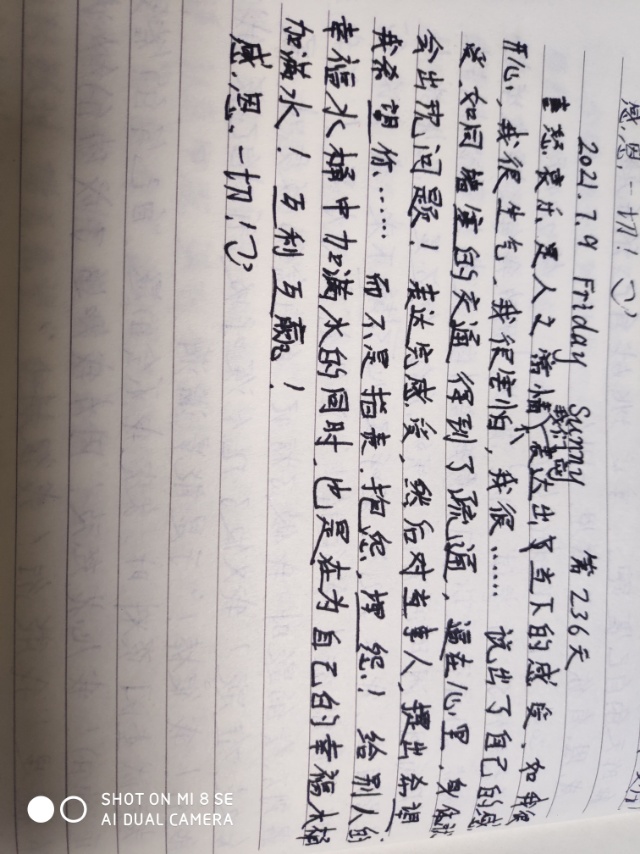 感恩一切!
2021.7.9 Friday Sunny 第236天
喜怒哀乐是人之常情,表达出当下的感受,如我很
开心,我很生气,我很害怕,我很……说出了自己的感
受,如同堵塞的交通得到了疏通,逼在心里,身体就
会出现问题!表达完感受,然后对当事人,提出希望
我希望你……而不是指责,抱怨,埋怨!给别人的
幸福水桶中加满水的同时,也是在为自己的幸福水桶
加满水!互利互赢!
感恩一切!
SHOT ON MI 8 SE
AI DUAL CAMERA